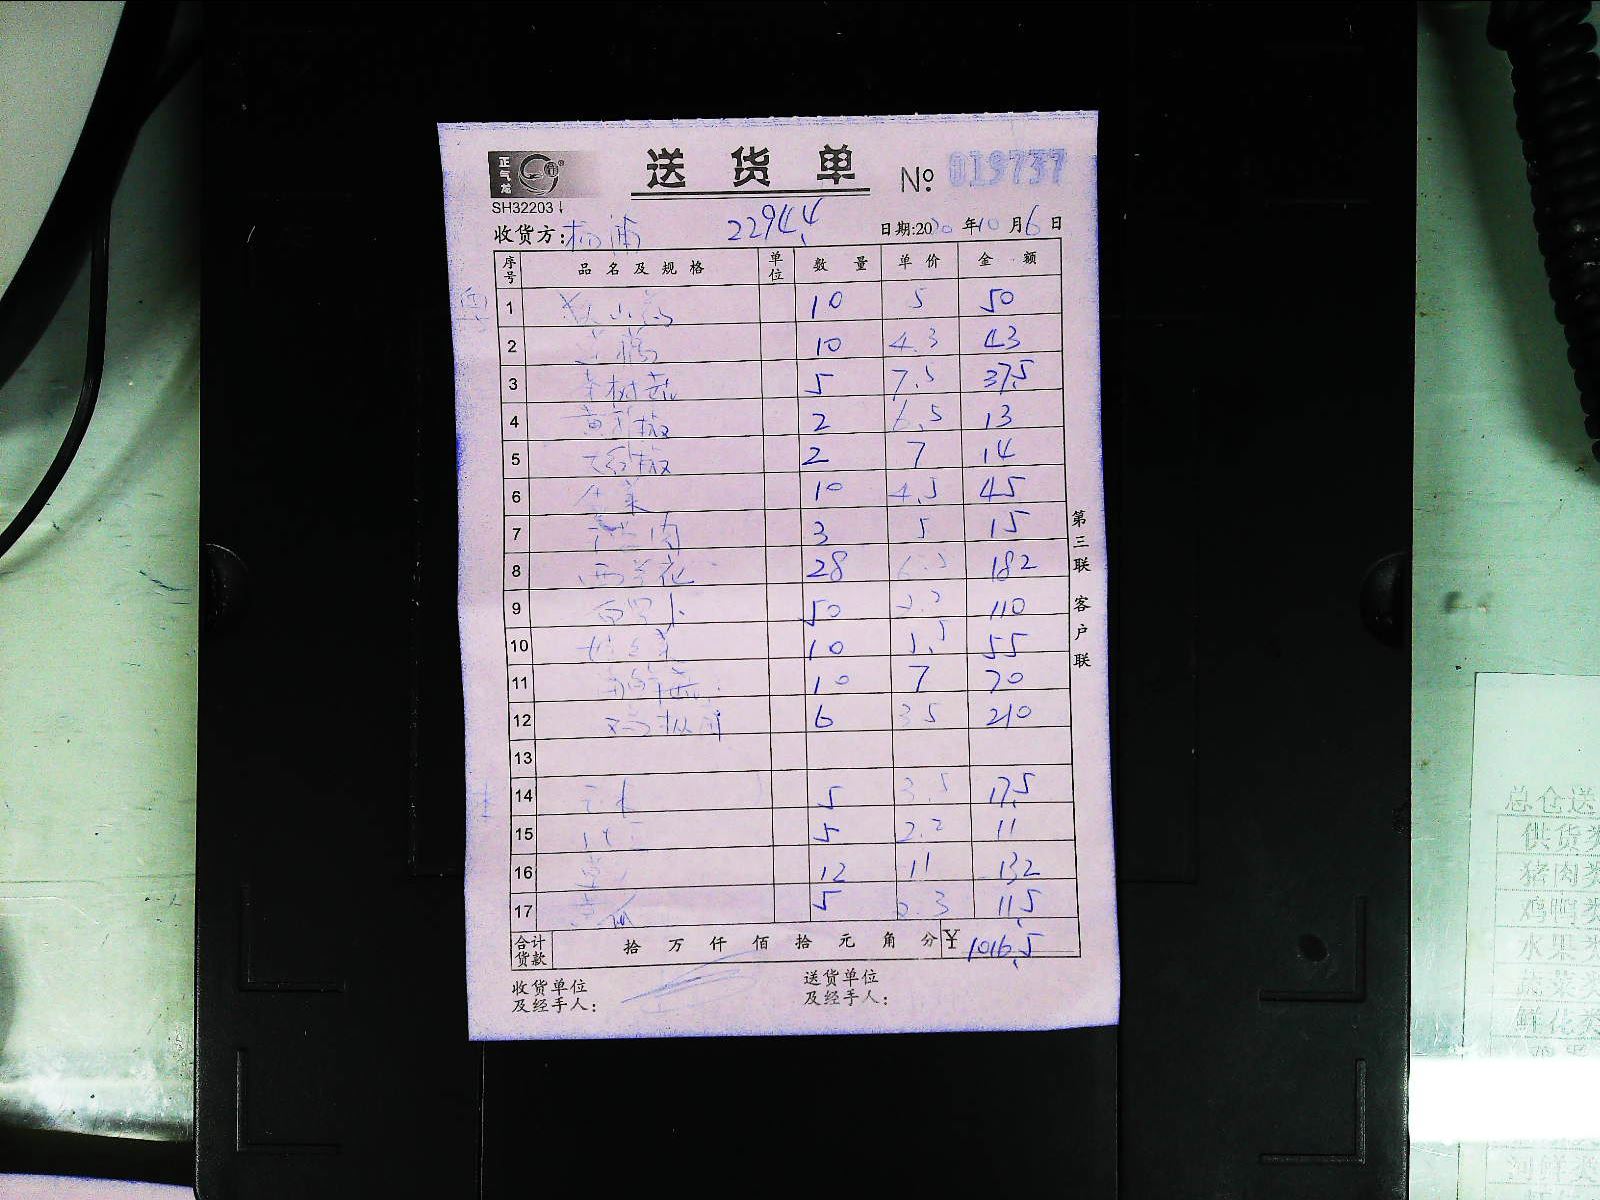 正气龙
SH32203
送货单 № 019737
收货方: 杨浦 22944 日期:2020年10月6日
序号 品名及规格 单位 数量 单价 金额
1 10 5 50
2 10 4.3 43
3 茶树菇 5 7.5 37.5
4 黄彩椒 2 6.5 13
5 大红椒 2 7 14
6 生菜 10 4.5 45
7 3 5 15
8 西兰花 28 6.5 182
9 白罗卜 50 2.2 110
10 10 5.5 55
11 10 7 70
12 鸡枞 6 35 210
13
14 5 3.5 17.5
15 5 2.2 11
16 12 11 132
17 5 2.3 11.5
合计货款 拾 万 仟 佰 拾 元 角 分 ¥ 1016.5
收货单位及经手人:
送货单位及经手人:
第三联 客户联
总仓送
供货类
猪肉类
鸡鸭类
水果类
蔬菜类
鲜花类
河鲜类